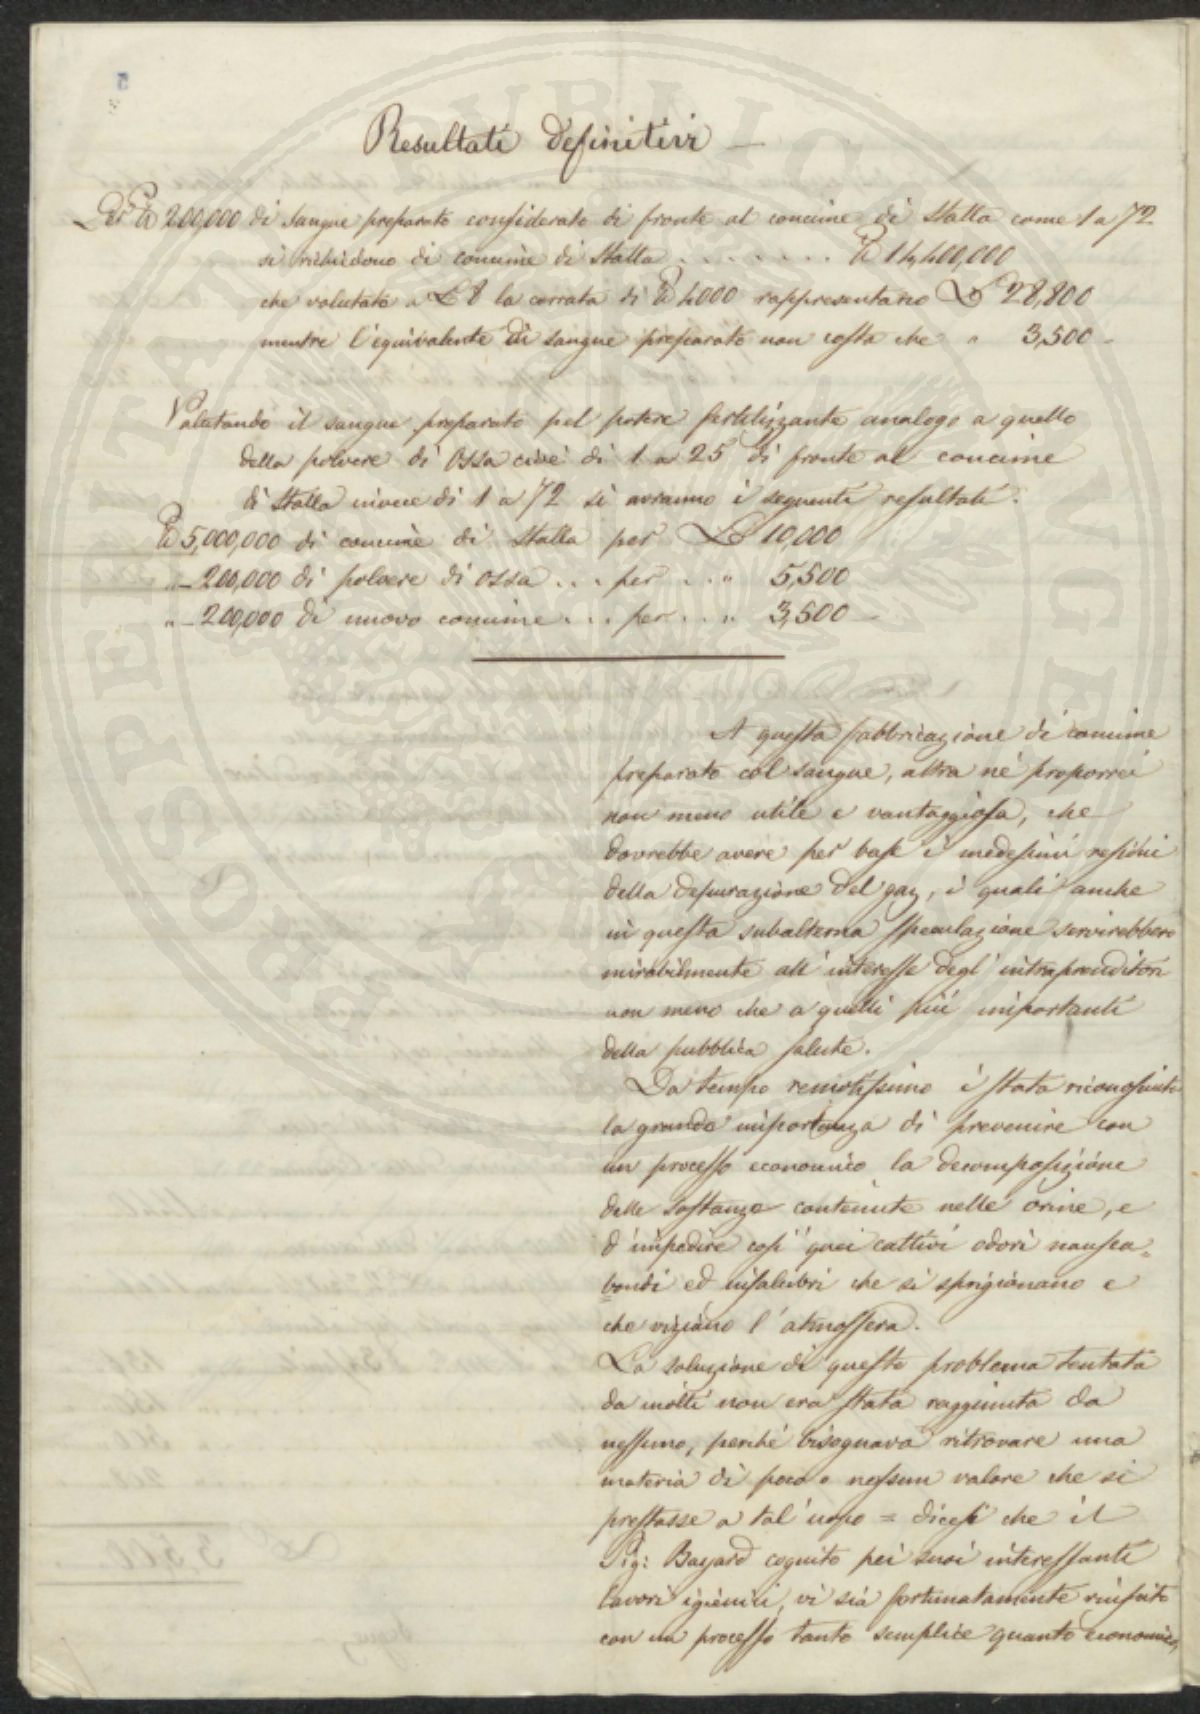 Resultati definitivi —
Per ℔ 200,000 di sangue preparato considerato di fronte al concime di Stalla come 1 a 72
si richiedono di concime di Stalla . . . . . . . . ℔ 14,400,000
che valutato a £ 8 la carrata di ℔ 4000 rappresentano £ 28,800
mentre l'equivalente di sangue preparato non costa che " 3,500 -
Valutando il sangue preparato pel potere fertilizzante analogo a quello
della polvere di Ossa cioè di 1 a 25 di fronte al concime
di Stalla invece di 1 a 72 si avranno i seguenti resultati.
℔ 5,000,000 di concime di Stalla per £ 10,000
" - 200,000 di polvere di ossa . . . per . . " 5,500
" - 200,000 di nuovo concime . . . per . . " 3,500 -
A questa fabbricazione di concime
preparato col sangue, altra nè proporrei
non meno utile e vantaggiosa, che
dovrebbe avere per base i medesimi resìdui
della depurazione del gaz, i quali anche
in questa subalterna speculazione servirebbero
mirabilmente all'interesse degl'intraprenditori
non meno che a quelli più importanti
della pubblica salute.
Da tempo remotissimo è stata riconosciuta
la grande importanza di prevenire con
un processo economico la decomposizione
delle sostanze contenute nelle orine, e
d'impedire così quei cattivi odori nausea=
bondi ed insalubri che si sprigionano e
che viziano l'atmosfera.
La soluzione di questo problema tentata
da molti non era stata raggiunta da
nessuno, perchè bisognava ritrovare una
materia di poco o nessun valore che si
prestasse a tal'uopo = dicesi che il
Sig: Bayard cognito pei suoi interessanti
lavori igienici, vi sia fortunatamente riuscito
con un processo tanto semplice quanto economico,